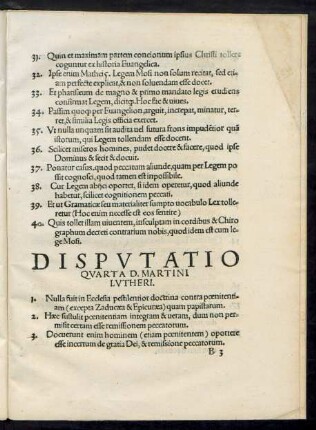 31. Quin et maximam partem concionum ipsius Christi tollere
coguntur ex historia Euangelica.
32. Ipse enim Mathei 5. Legem Mosi non solum recitat, sed eti=
am perfecte explicat, & non soluendam esse docet.
33. Et pharisæum de magno & primo mandato legis erudiens
confirmat Legem, dicitq; Hoc fac & uiues.
34. Passim quoq; per Euangelion, arguit, increpat, minatur, terret,
& similia Legis officia exercet.
35. Vt nulla unquam sit audita uel futura frons impudẽtior quã
istorum, qui Legem tollendam esse docent.
36. Scilicet nuseros homines, pudet docere & facere, quod ipse
Dominus & fecit & docuit.
37. Ponatur casus, quod peccatum aliunde, quam per Legem pos=
sit cognosci, quod tamen est inpossibile.
38. Cur Legem abijci oportet, si idem operetur, quod aliunde
habetur, scilicet cognitionem peccati.
39. Et ut Grammaticæ seu materialiter sumpto uocabulo Lex tolle=
retur (Hoc enim necesse est eos sentire)
40. Quis tollet illam uiuentem, insculptam in cordibus & Chiro
graphum decreti contrarium nobis, quod idem est cum le=
ge Mosi.
DISPVTATIO
QVARTA D. MARTINI
LVTHERI.
1. Nulla fuit in Ecclesia pestilentior doctrina contra pœnitenti=
am (excepta Zaducæa & Epicuræa) quam papistarum.
2. Hæc sustulit pœnitentiam integram & ueram, dum non per=
misit certam esse remissionem peccatorum.
3. Docuerunt enim hominem (etiam pœnitentem) oportere
esse incertum de gratia Dei, & remissione peccatorum.
B 3